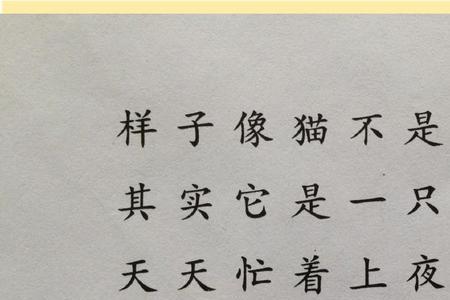 样子像猫不是
其实它是一只
天天忙着上夜